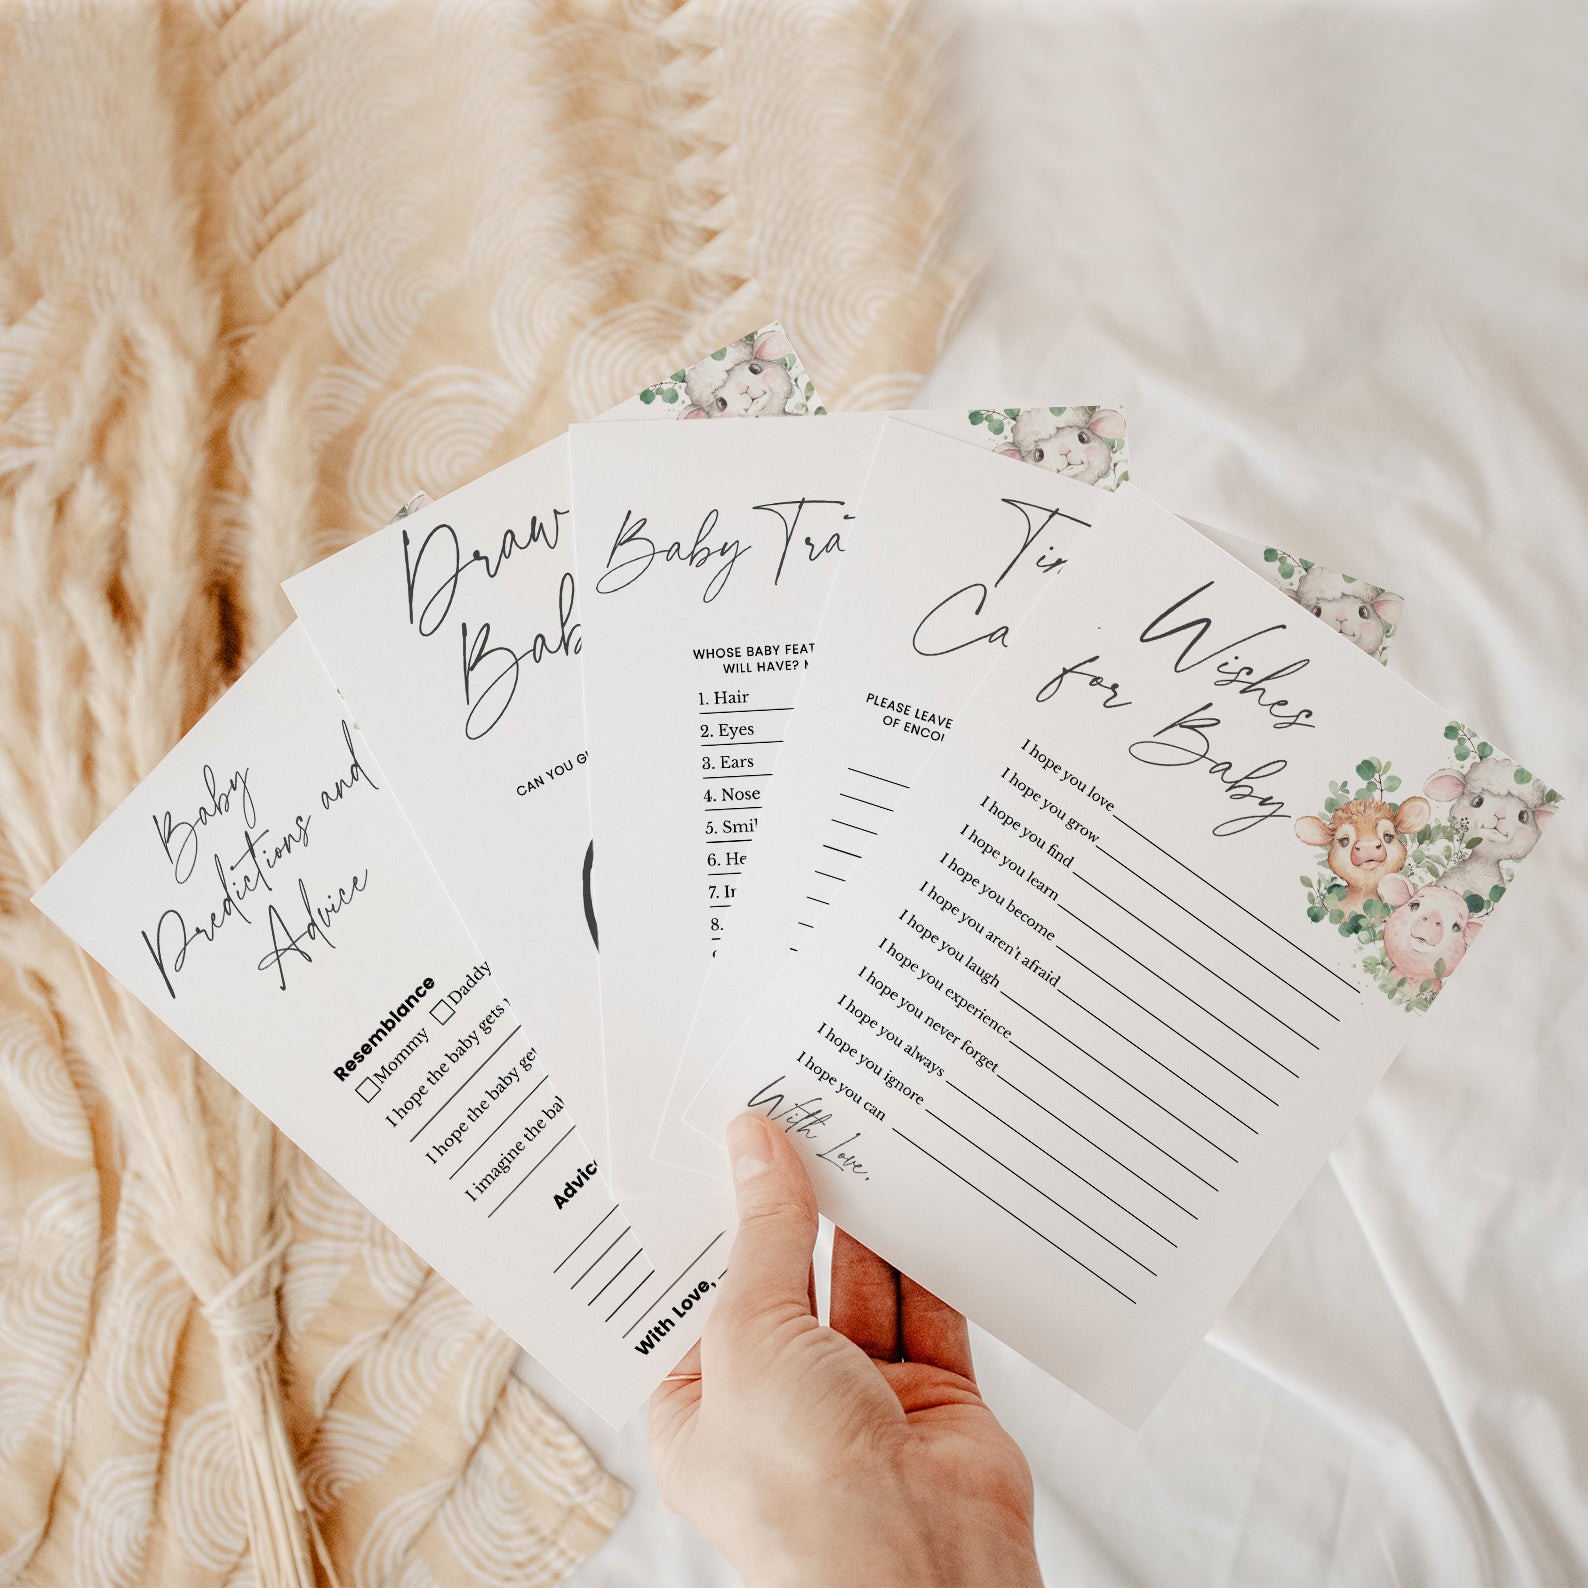 Baby
Predictions and
Advice
Resemblance
Mommy Daddy
I hope the baby gets
I hope the baby get
I imagine the bab
Advic
With Love,
Draw
Bab
CAN YOU G
Baby Tra
WHOSE BABY FEAT
WILL HAVE?
1. Hair
2. Eyes
3. Ears
4. Nose
5. Smil
6. He
7. Ir
8.
Tim
Ca
PLEASE LEAVE
OF ENCOU
Wishes
for Baby
I hope you love
I hope you grow
I hope you find
I hope you learn
I hope you become
I hope you aren't afraid
I hope you laugh
I hope you experience
I hope you never forget
I hope you always
I hope you ignore
I hope you can
With Love,